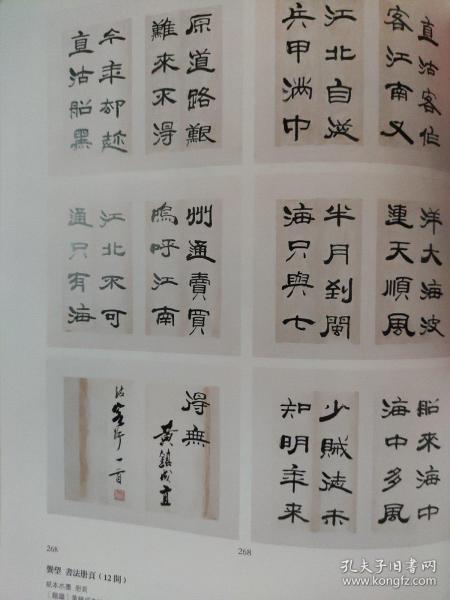 直沽客作
客江南又
江北自從
兵甲滿中
原道路艱
難來不得
今年却趂
直沽船黑
洋大海波
連天順風
半月到閩
海只與七
州通賣買
嗚呼江南
江北不可
通只有海
船來海中
海中多風
少賊徒未
知明年來
得無
黃鎮成直
沽客行一首
268
268
龔望 書法册頁(12開)
紙本水墨 册頁
孔夫子旧书网